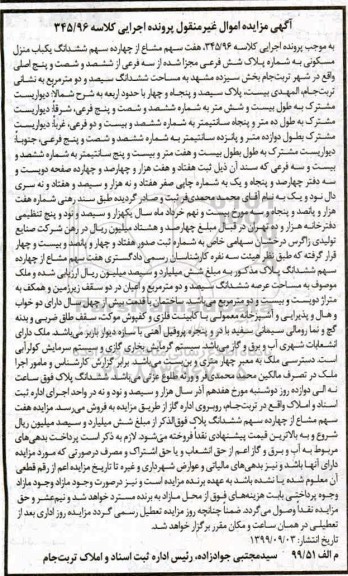 آگهی مزایده اموال غیرمنقول پرونده اجرایی کلاسه ۳۴۵/۹۶
به موجب پرونده اجرایی کلاسه ۳۴۵/۹۶، هفت سهم مشاع از چهارده سهم ششدانگ یکباب منزل
مسکونی به شماره پلاک شش فرعی مجزا شده از سه فرعی از ششصد و شصت و پنج اصلی
واقع در شهر تربت‌جام بخش سیزده مشهد به مساحت ششدانگ سیصد و دو مترمربع به نشانی
تربت‌جام، المهدی بیست، پلاک سیصد و پنجاه و چهار با حدود اربعه به شرح شمالاً: دیواریست
مشترک به طول بیست و شش متر به شماره ششصد و شصت و پنج فرعی، شرقاً: دیواریست
مشترک به طول ده متر و پنجاه سانتیمتر به شماره ششصد و بیست و دو فرعی، غرباً: دیواریست
مشترک بطول دوازده متر و پانزده سانتیمتر به شماره ششصد و شصت و پنج فرعی، جنوباً:
دیواریست مشترک به طول بیست و هفت متر و بیست و پنج سانتیمتر به شماره ششصد و
بیست و سه فرعی که سند آن ذیل ثبت هفتاد و هفت هزار و چهارصد و چهارده صفحه دویست و
سه دفتر چهارصد و پنجاه و یک به شماره چاپی صفر هفتاد و نه هزار و سیصد و هفتاد و نه سری
دال نود و یک به نام آقای محمد محمدی‌فر ثبت و صادر گردیده طبق سند رهنی شماره هفت
هزار و پانصد و پنجاه و سه مورخ بیست و نهم خرداد ماه سال یکهزار و سیصد و نود و پنج تنظیمی
دفترخانه هزار و نه تهران در قبال مبلغ چهارصد و هشتاد میلیون ریال در رهن شرکت صنایع
تولیدی زاگرس درخشان سهامی خاص به شماره ثبت صدور هفتاد و چهار و پانصد و بیست و چهار
قرار گرفته که طبق نظر هیئت سه نفره کارشناسان رسمی دادگستری هفت سهم مشاع از چهارده
سهم ششدانگ پلاک مذکور به مبلغ شش میلیارد و سیصد میلیون ریال ارزیابی شده و ملک
موصوف به مساحت عرصه ششدانگ سیصد و دو مترمربع و اعیان در دو سقف زیرزمین و همکف به
متراژ دویست و بیست و دو مترمربع می‌باشد. ساختمان با قدمت بیش از چهل سال دارای دو خواب
و هال و پذیرایی و آشپزخانه معمولی با کابینت فلزی و کفپوش موکت، سقف طاق ضربی و بدنه
گچ و نما رومالی سیمانی سفید با در و پنجره پروفیل آهنی با سازه دیوار باربر می‌باشد. ملک دارای
انشعابات شهری آب و برق و گاز می‌باشد. سیستم گرمایش بخاری گازی و سیستم سرمایش کولر آبی
است. دسترسی ملک به معبر چهار متری و بن‌بست می‌باشد. برابر گزارش کارشناس و مامور اجرا
ملک در تصرف مالکین محمد محمدی‌فر و ورثه طلوع عزتی می‌باشد. ششدانگ پلاک فوق ساعت
نه الی دوازده روز دوشنبه مورخ هفدهم آذر سال هزار و سیصد و نود و نه در واحد اجرای اداره ثبت
اسناد و املاک واقع در تربت‌جام، روبروی اداره گاز از طریق مزایده به فروش می‌رسد. مزایده هفت
سهم مشاع از چهارده سهم ششدانگ پلاک فوق‌الذکر از مبلغ شش میلیارد و سیصد میلیون ریال
شروع و به بالاترین قیمت پیشنهادی نقداً فروخته می‌شود. لازم به ذکر است پرداخت بدهی‌های
مربوط به آب و برق و گاز اعم از حق انشعاب و یا حق اشتراک و مصرف درصورتی که مورد مزایده
دارای آنها باشد و نیز بدهی‌های مالیاتی و عوارض شهرداری و غیره تا تاریخ مزایده اعم از رقم قطعی
آن معلوم شده یا نشده باشد به عهده برنده مزایده است و نیز درصورت وجود مازاد وجوه مازاد
وجوه پرداختی بابت هزینه‌های فوق از محل مازاد به برنده مسترد خواهد شد و نیم‌عشر و حق
مزایده نقداً وصول می‌گردد. ضمناً چنانچه روز مزایده تعطیل رسمی گردد مزایده روز اداری بعد از
تعطیلی در همان ساعت و مکان مقرر برگزار خواهد شد.
تاریخ انتشار: ۱۳۹۹/۰۹/۰۳
م الف ۹۹/۵۱ سیدمجتبی جوادزاده، رئیس اداره ثبت اسناد و املاک تربت‌جام